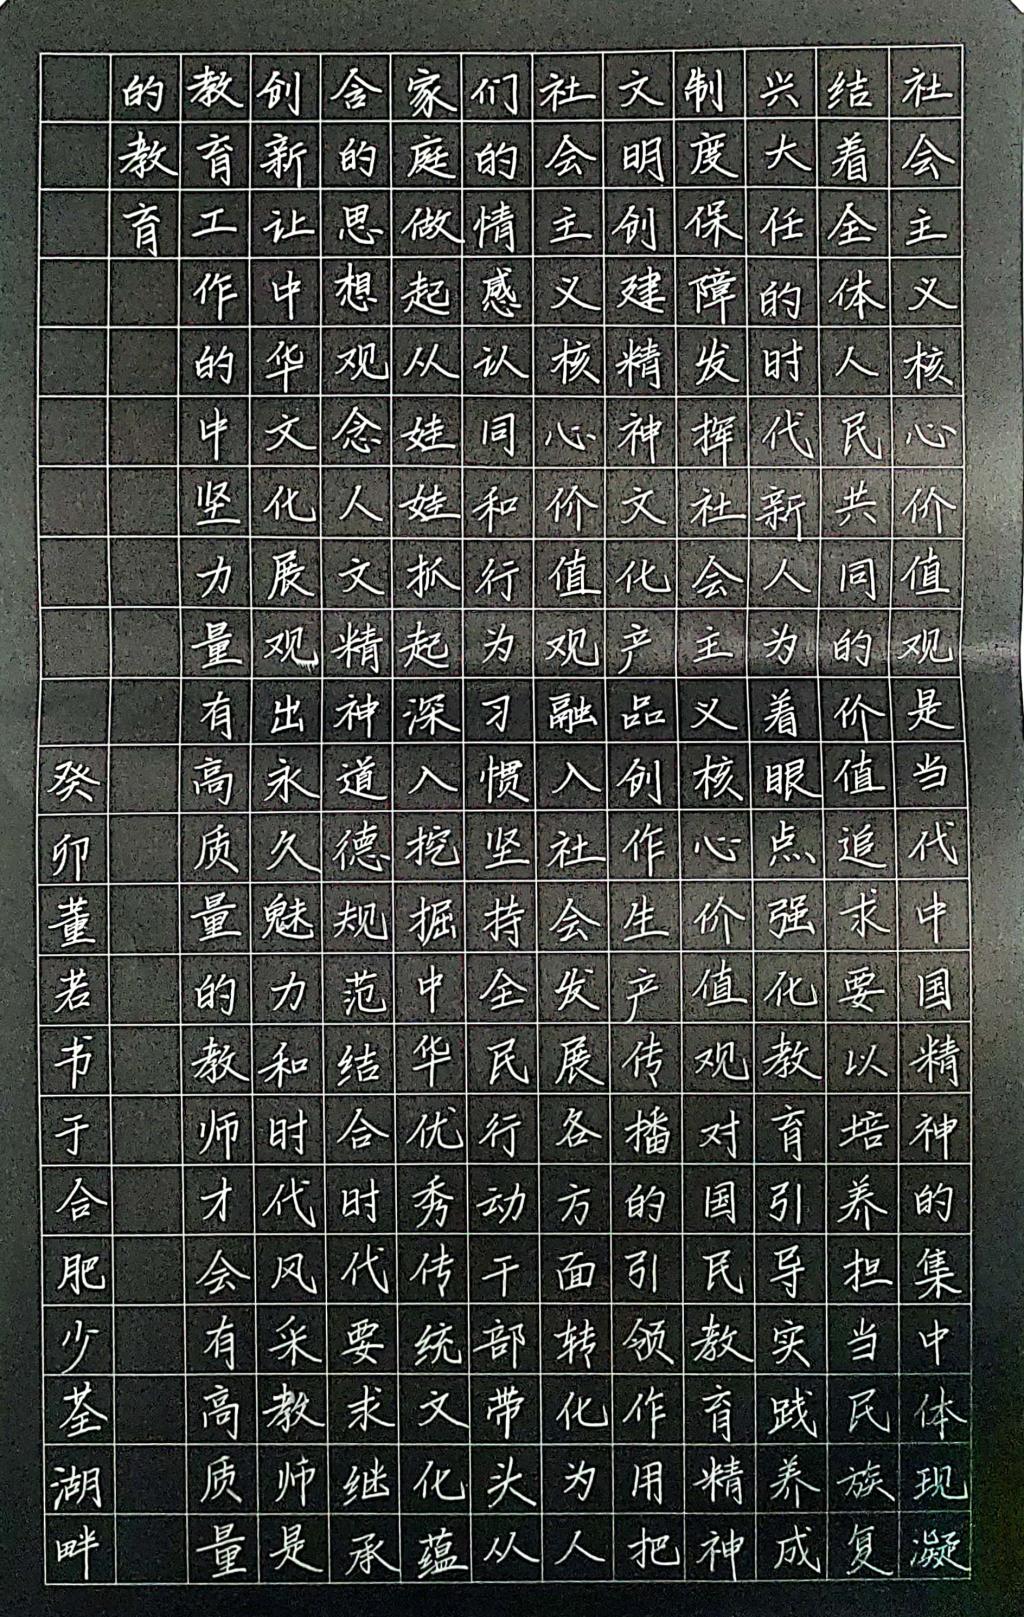 社会主义核心价值观是当代中国精神的集中体现凝
结着全体人民共同的价值追求要以培养担当民族复
兴大任的时代新人为着眼点强化教育引导实践养成
制度保障发挥社会主义核心价值观对国民教育精神
文明创建精神文化产品创作生产传播的引领作用把
社会主义核心价值观融入社会发展各方面转化为人
们的情感认同和行为习惯坚持全民行动干部带头从
家庭做起从娃娃抓起深入挖掘中华优秀传统文化蕴
含的思想观念人文精神道德规范结合时代要求继承
创新让中华文化展观出永久魅力和时代风采教师是
教育工作的中坚力量有高质量的教师才会有高质量
的教育
癸卯董若书于合肥少荃湖畔